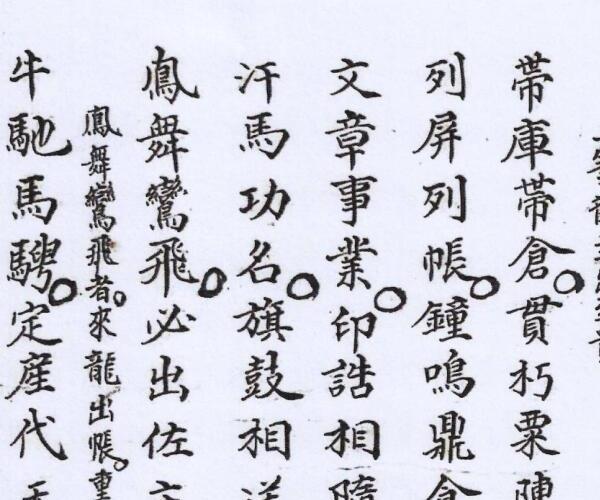 帶庫帶倉○貫朽粟陳
列屏列帳○鐘鳴鼎食
文章事業○印誥相隨
汗馬功名○旗鼓相
鳳舞鸞飛○必出佐
鳳舞鸞飛者○來龍出帳○重
牛馳馬騁○定産代